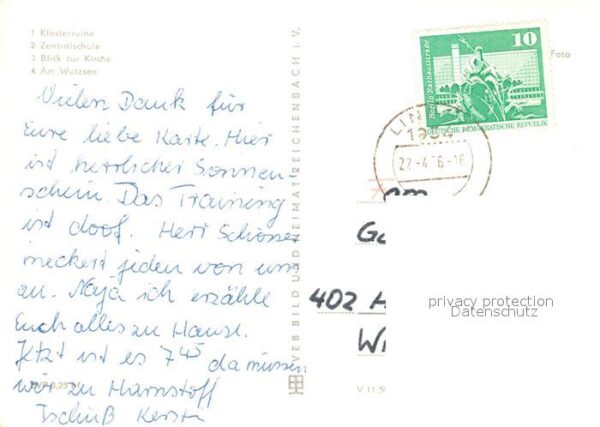 1 Klosterruine
2 Zentralschule
3 Blick zur Kirche
4 Am Wutzsee
Vielen Dank für
Eure liebe Karte. Hier
ist herrlicher Sonnen-
schein. Das Training
ist doof. Herr Schosser
meckert jeden von uns
an. Naja ich erzähle
Euch alles zu Hause.
Jetzt ist es 7 45 da müssen
wir zu Harnstoff
Tschüß Kersti
EVP 0,25 M
VEB BILD UND HEIMAT REICHENBACH I. V.
Foto
10
Berlin Rathausstraße
DEUTSCHE DEMOKRATISCHE REPUBLIK
LIN
22.-4.76.-16
402 H
W
V 11 5
privacy protection
Datenschutz